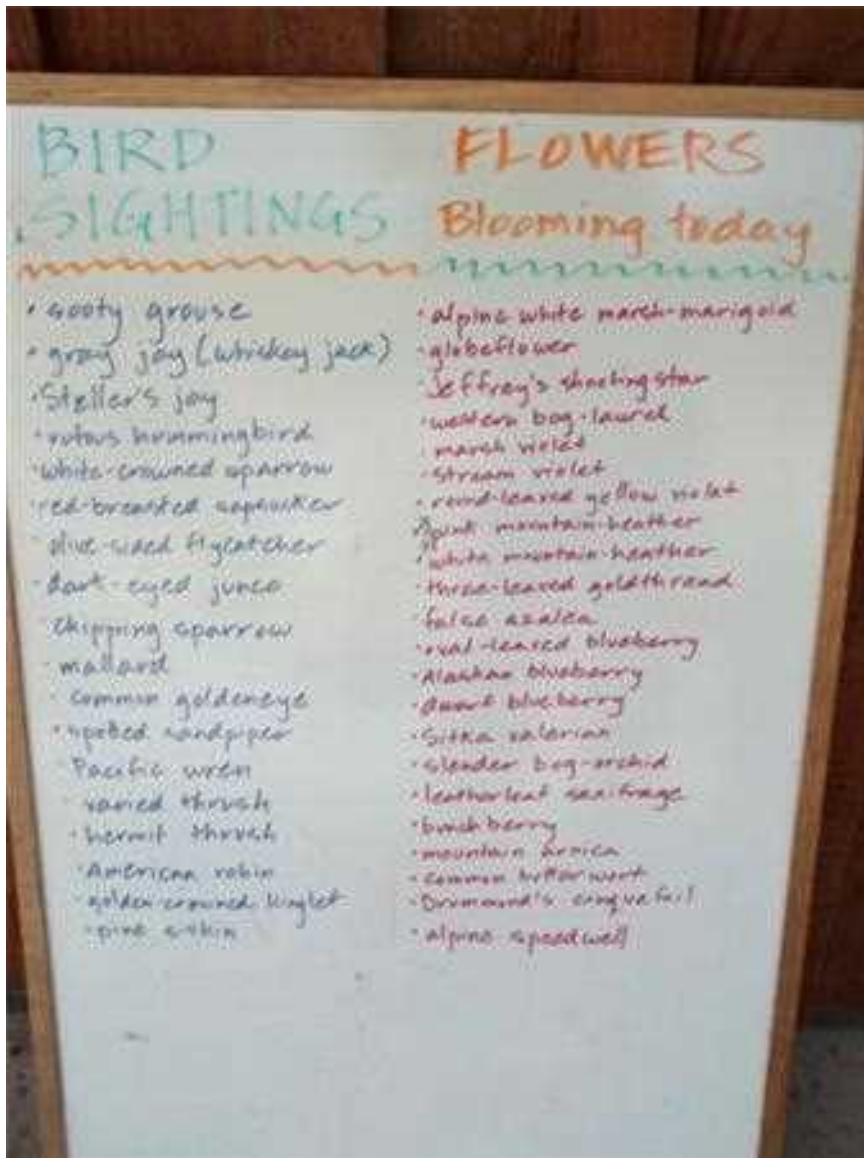 BIRD
SIGHTINGS
• sooty grouse
• gray jay (whiskey jack)
• Steller's jay
• rufous hummingbird
• white-crowned sparrow
• red-breasted sapsucker
• olive-sided flycatcher
• dark-eyed junco
chipping sparrow
• mallard
• common goldeneye
• spotted sandpiper
Pacific wren
• varied thrush
• hermit thrush
• American robin
• golden crowned kinglet
• pine siskin
FLOWERS
Blooming today
• alpine white marsh-marigold
• globeflower
• Jeffrey's shooting star
• western bog-laurel
marsh violet
• stream violet
• round-leaved yellow violet
• pink mountain-heather
• white mountain-heather
• three-leaved goldthread
• false azalea
• oval-leaved blueberry
• Alaskan blueberry
• dwarf blueberry
• Sitka valerian
• slender bog-orchid
• leatherleaf saxifrage
• bunchberry
• mountain arnica
• common butterwort
• Drummond's cinquefoil
• alpine speedwell